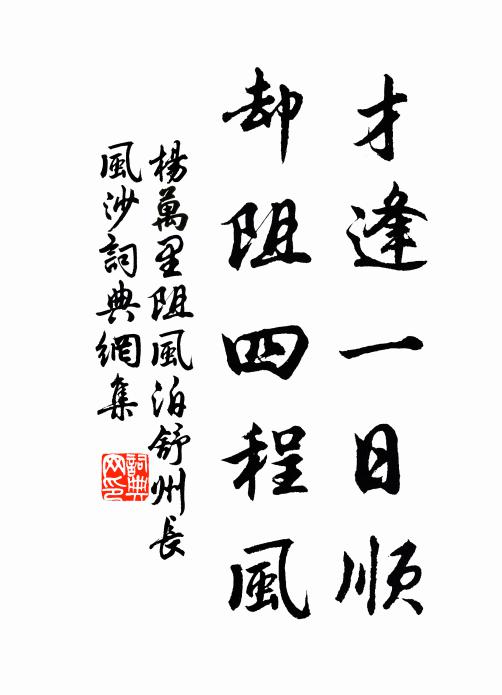 才逢一日順
却阻四程風
楊萬里阻風泊舒州長
風沙詞典網集
詞典网印